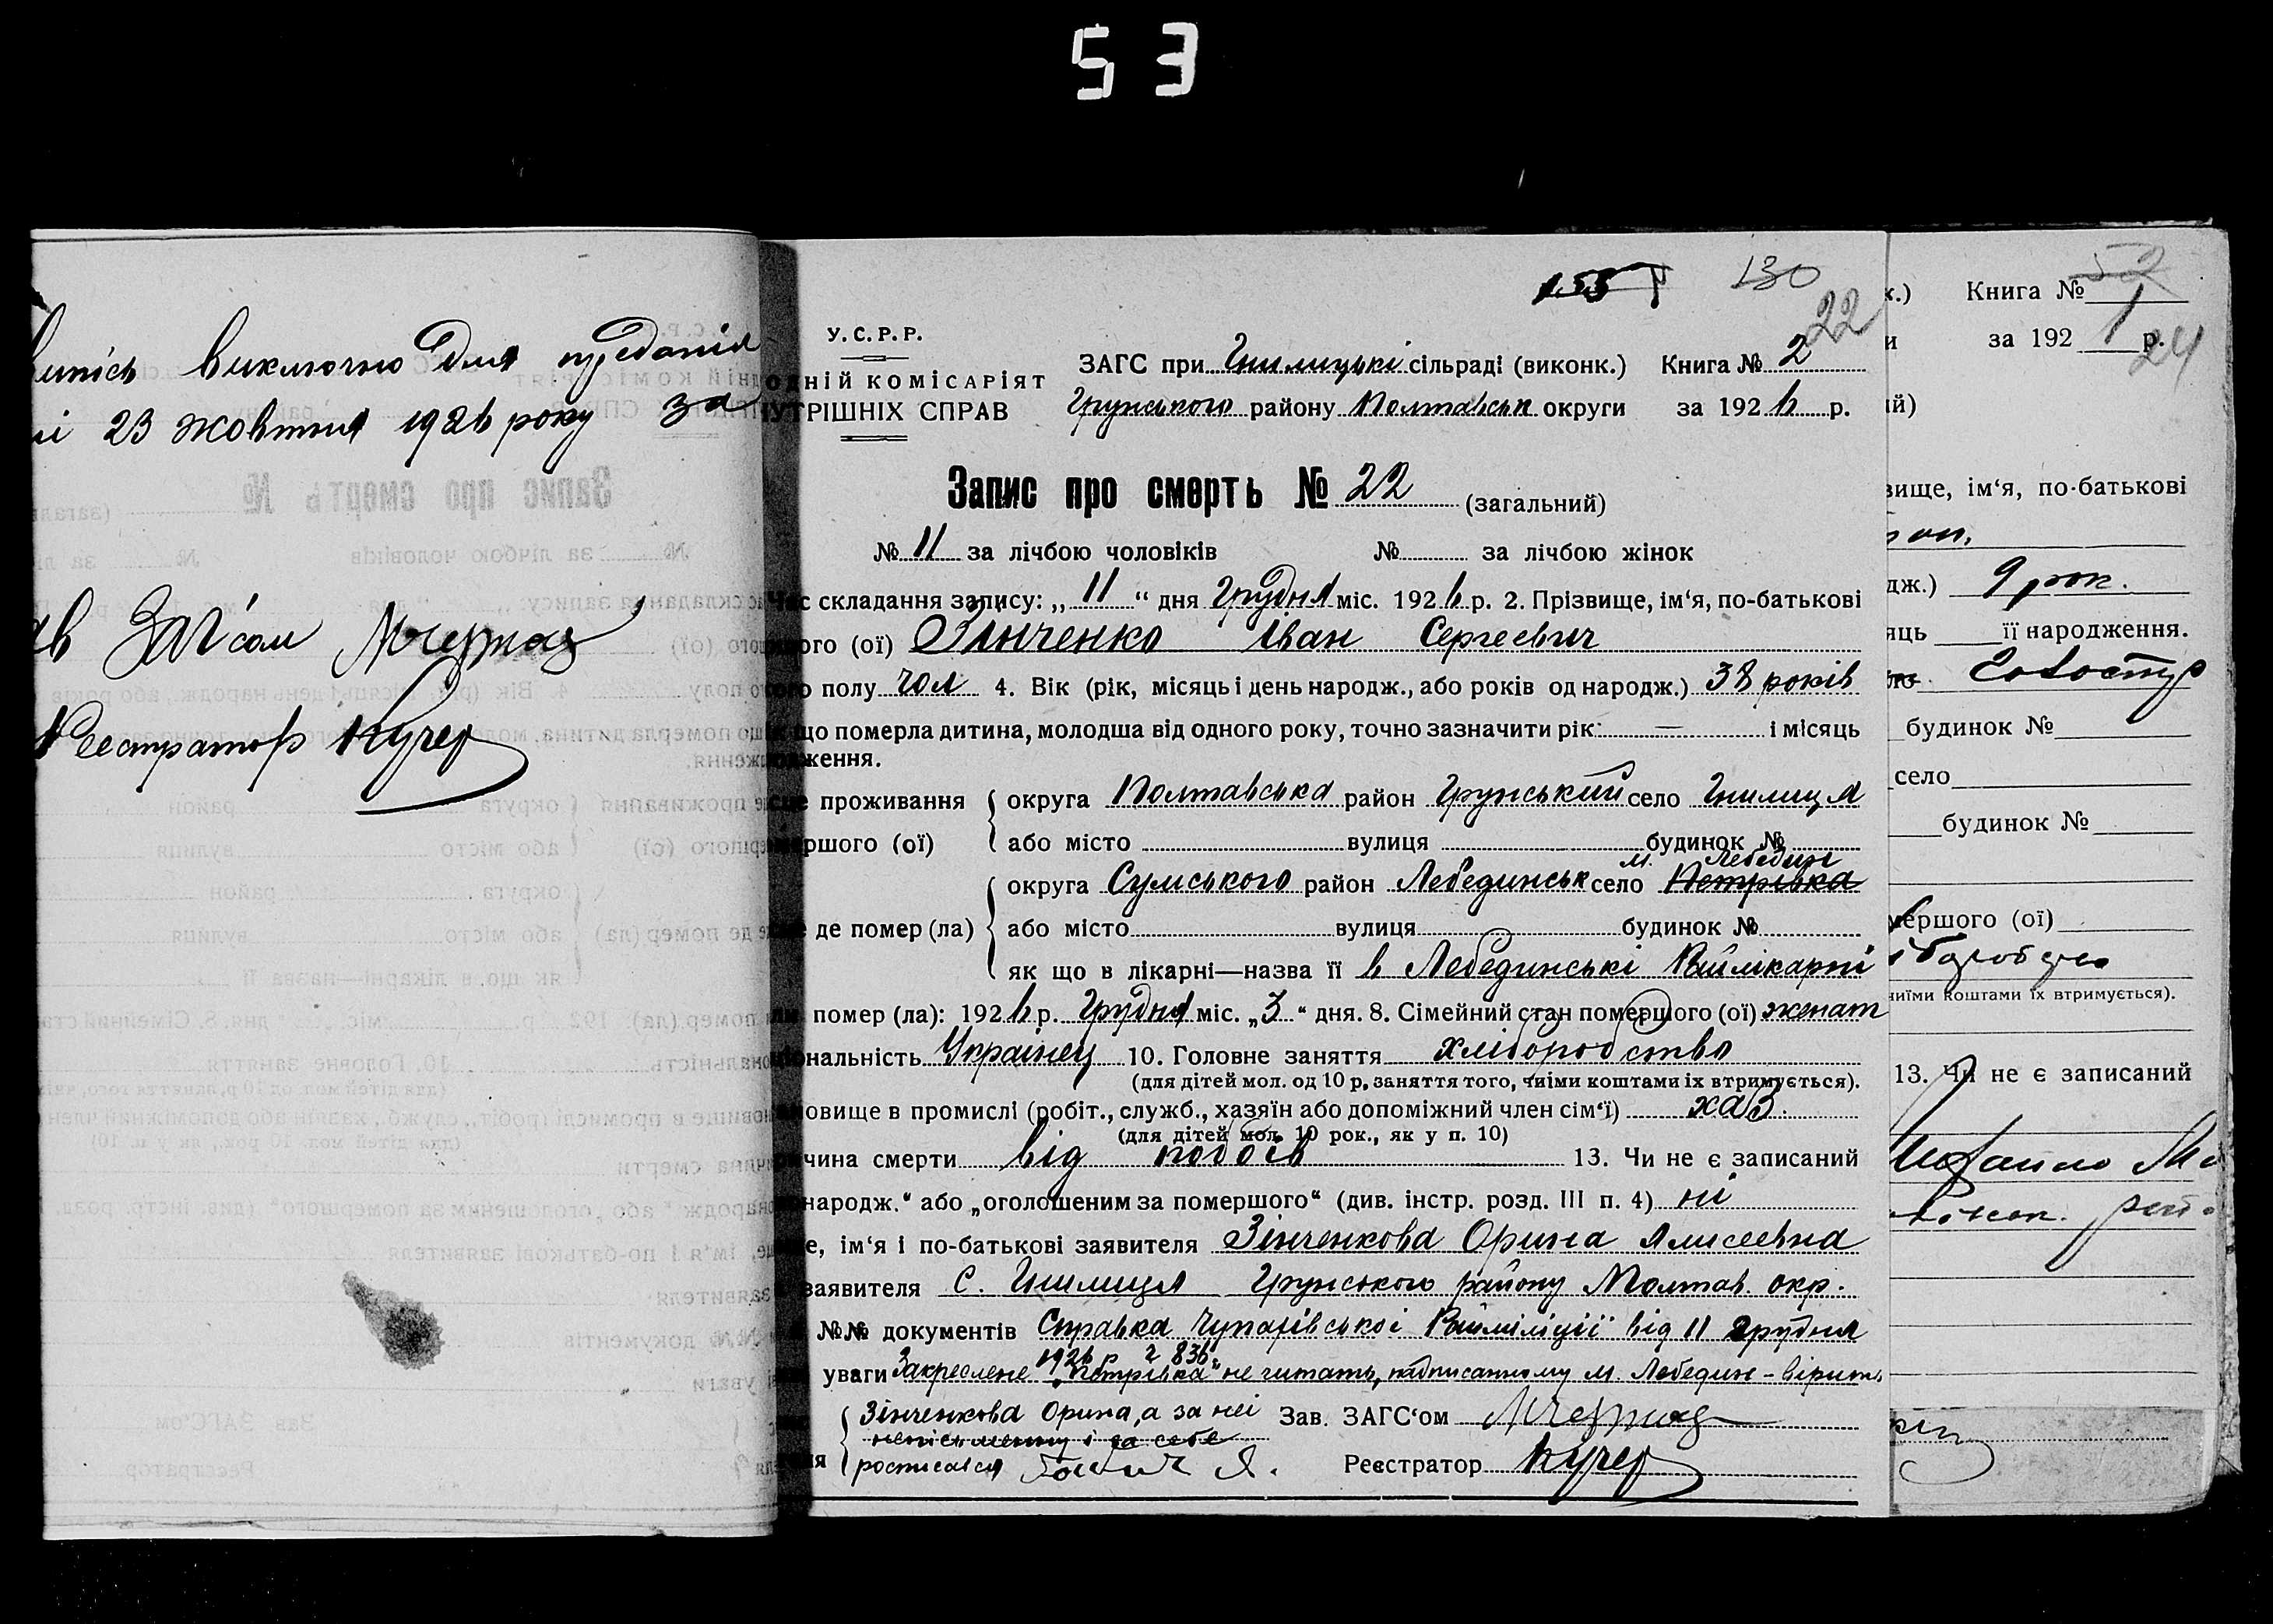 53
виключно для
23 жовтня 1926 року за
ЗАГ'сом
Реєстратор Кучер
130
22
У.С.Р.Р.
ОДНІЙ КОМІСАРІЯТ
УТРІШНІХ СПРАВ
ЗАГС при Гнилицькі сільраді (виконк.) Книга № 2
Грунського району Полтавськ округи за 1926 р.
Запис про смерть № 22 (загальний)
№ 11 за лічбою чоловіків № за лічбою жінок
Час складання запису: „ 11 “ дня Грудня міс. 1926 р. 2. Прізвище, ім‘я, по-батькові
ого (ої) Зінченко Іван Сергеевич
ого полу чол 4. Вік (рік, місяць і день народж., або років од народж.) 38 років
що померла дитина, молодша від одного року, точно зазначити рік: — і місяць
ження.
проживання округа Полтавська район Грунський село Гнилиця
ршого (ої) або місто вулиця будинок №
м. Лебедин
округа Сумського район Лебединськ село Петрівка
де помер (ла) або місто вулиця будинок №
як що в лікарні—назва її в Лебединські Райлікарні
помер (ла): 1926 р. Грудня міс. „3“ дня. 8. Сімейний стан помершого (ої) женат
ональність Українец 10. Головне заняття хліборобство
(для дітей мол. од 10 р, заняття того, чиїми коштами їх втримується).
новище в промислі (робіт., служб., хазяїн або допоміжний член сім‘ї) хаз.
(для дітей мол. 10 рок., як у п. 10)
чина смерти від побоїв 13. Чи не є записаний
народж.“ або „оголошеним за помершого“ (див. інстр. розд. III п. 4) ні
е, ім‘я і по-батькові заявителя Зінченкова Орина Алисеевна
заявителя С. Гнилиця Грунського району Полтав. окр.
№№ документів Справка Чупахівської Райміліції від 11 грудня
1926 р ч 836
уваги Закреслене „Петрівка“ не читать, надписанному м. Лебедин - вірить
Зінченкова Орина, а за неї Зав. ЗАГС‘ом
неписьменну і за себе
росписався Реєстратор Кучер
к.) Книга № 1
и за 192 р.
24
ій)
вище, ім‘я, по-батькові
дж.) 9 рок.
яць її народження.
будинок №
село
будинок №
мершого (ої)
чиїми коштами їх втримується).
13. Чи не є записаний